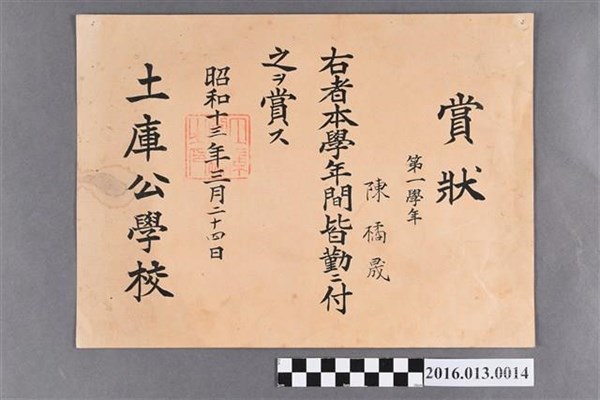 賞狀
第一學年
陳橘晟
右者本學年間皆勤ニ付
之ヲ賞ス
昭和十三年三月二十四日
土庫公學校
2016.013.0014